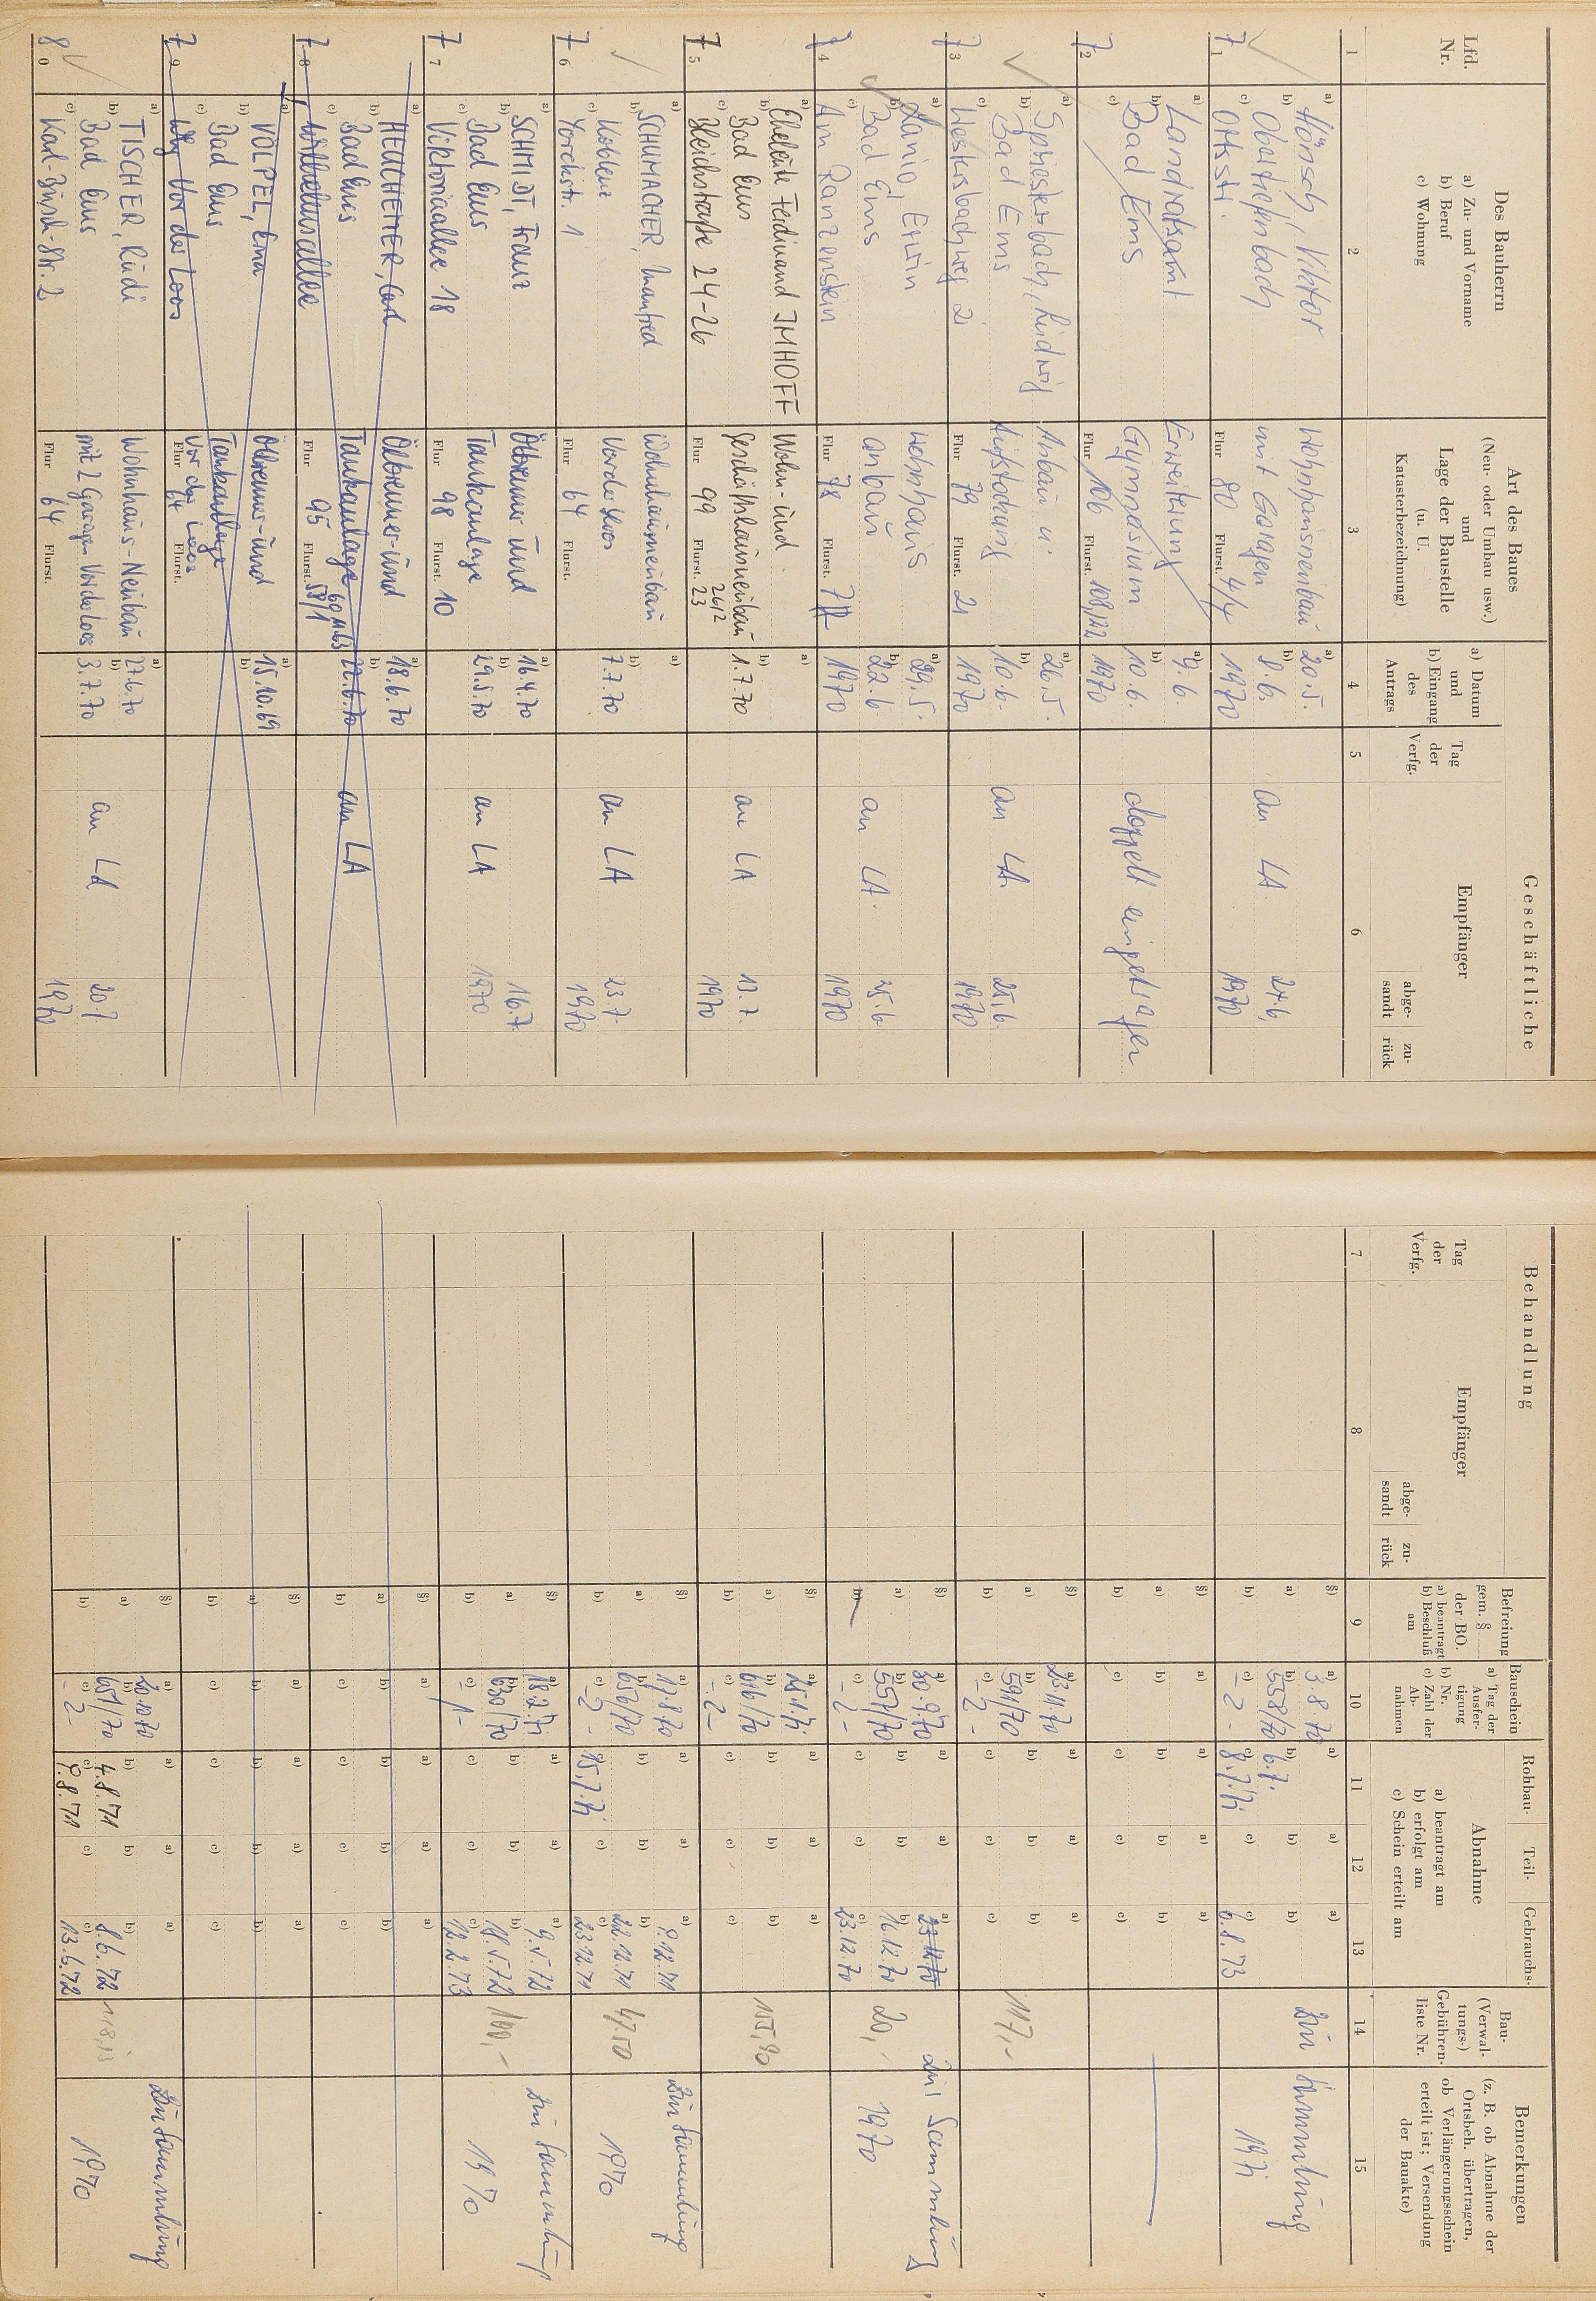 Geschäftliche
Behandlung
Lfd.
Nr.
Des Bauherrn
a) Zu- und Vorname
b) Beruf
c) Wohnung
Art des Baues
(Neu- oder Umbau usw.)
und
Lage der Baustelle
(u. U.
Katasterbezeichnung)
a) Datum
und
b) Eingang
des
Antrags
Tag
der
Verfg.
Empfänger
abge-
sandt
zu-
rück
Tag
der
Verfg.
Empfänger
abge-
sandt
zu-
rück
Befreiung
gem. §
der BO.
a) beantragt
b) Beschluß
am
Bauschein
a) Tag der
Ausfer-
tigung
b) Nr.
c) Zahl der
Ab-
nahmen
Rohbau-
Teil-
Gebrauchs-
Abnahme
a) beantragt am
b) erfolgt am
c) Schein erteilt am
Bau-
(Verwal-
tungs-)
Gebühren-
liste Nr.
Bemerkungen
(z. B. ob Abnahme der
Ortsbeh. übertragen,
ob Verlängerungsschein
erteilt ist; Versendung
der Bauakte)
1 2 3 4 5 6 7 8 9 10 11 12 13 14 15
71
a) Hönsch, Viktor
b) Obertiefenbach
c) Ortsstr.
Wohnhausneubau
mit Garagen
Flur 80 Flurst. 4/4
a) 20.5.
b) 8.6.
1970
an LA.
24.6.
1970
a) 3.8.70
b) 558/70
c) - 2 -
b) 6.7.
c) 8.7.71
c) 6.8.73
Zur Sammlung
1971
72
a) Landratsamt
b) Bad Ems
c)
Erweiterung
Gymnasium
Flur 106 Flurst. 108/22
a) 9.6.
b) 10.6.
1970
doppelt eingetragen
73
a) Spriestersbach, Ludwig
b) Bad Ems
c) Hestersbachweg 21
Anbau u.
Aufstockung
Flur 79 Flurst. 21
a) 26.5.
b) 10.6.
1970
an LA.
25.6.
1970
a) 23.11.70
b) 591/70
c) - 2 -
117,-
74
a) Lanio, Erwin
b) Bad Ems
c) Am Ranzenstein
Wohnhaus
anbau
Flur 78 Flurst.
a) 29.5.
b) 22.6.
1970
an LA.
25.6.
1970
a) 30.9.70
b) 557/70
c) - 2 -
a) 23.12.70
b) 16.12.70
c) 23.12.70
20,-
Zur Sammlung
1970
75
a) Eheleute Ferdinand IMHOFF
b) Bad Ems
c) Bleichstraße 24-26
Wohn- und
Geschäftshausneubau
Flur 99 Flurst. 26/2
23
b) 1.7.70
an LA
13.7.
1970
a) 25.1.71
b) 616/70
c) - 2 -
155,80
76
a) SCHUMACHER, Manfred
b) Koblenz
c) Yorckstr. 1
Wohnhausneubau
Vor der Loos
Flur 64
b) 7.7.70
an LA
23.7.
1970
a) 17.8.70
b) 656/70
c) - 2 -
c) 15.7.71
a) 9.12.71
b) 22.12.71
c) 23.12.71
47,50
Zur Sammlung
1970
77
a) SCHMIDT, Franz
b) Bad Ems
c) Viktoriaallee 18
Ölbrenner- und
Tankanlage
Flur 98 Flurst. 10
a) 16.4.70
b) 29.5.70
an LA
16.7.
1970
a) 18.2.71
b) 630/70
c) - 1 -
a) 9.5.72
b) 18.5.72
c) 12.2.73
100,-
Zur Sammlung
1970
78
a) HEUCHEMER, Carl
b) Bad Ems
c) Wilhelmsallee
Ölbrenner- und
Tankanlage
Flur 95 Flurst. 58/1
a) 18.6.70
b) 22.6.70
an LA
79
a) VÖLPEL, Erna
b) Bad Ems
c) Weg Vor der Loos
Ölbrenner- und
Tankanlage
Vor der Loos
Flur 64 Flurst.
a) 15.10.69
80
a) TISCHER, Rudi
b) Bad Ems
c) Karl-Busch-Str. 2
Wohnhaus-Neubau
mit 2 Garagen Vor der Loos
Flur 64 Flurst.
a) 27.6.70
b) 3.7.70
an LA
20.7.
1970
a) 20.10.70
b) 651/70
c) - 2 -
b) 4.8.71
c) 9.8.71
b) 8.6.72
c) 13.6.72
118,13
Zur Sammlung
1970